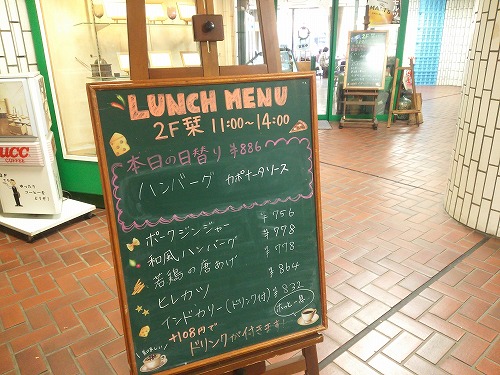 LUNCH MENU
2F 栞 11:00~14:00
本日の日替り ¥886
ハンバーグ カポナータソース
ポークジンジャー ¥756
和風ハンバーグ ¥778
若鶏の唐あげ ¥778
ヒレカツ ¥864
インドカリー(ドリンク付) ¥832
+108円で
ドリンクが付きます!
UCC
COFFEE